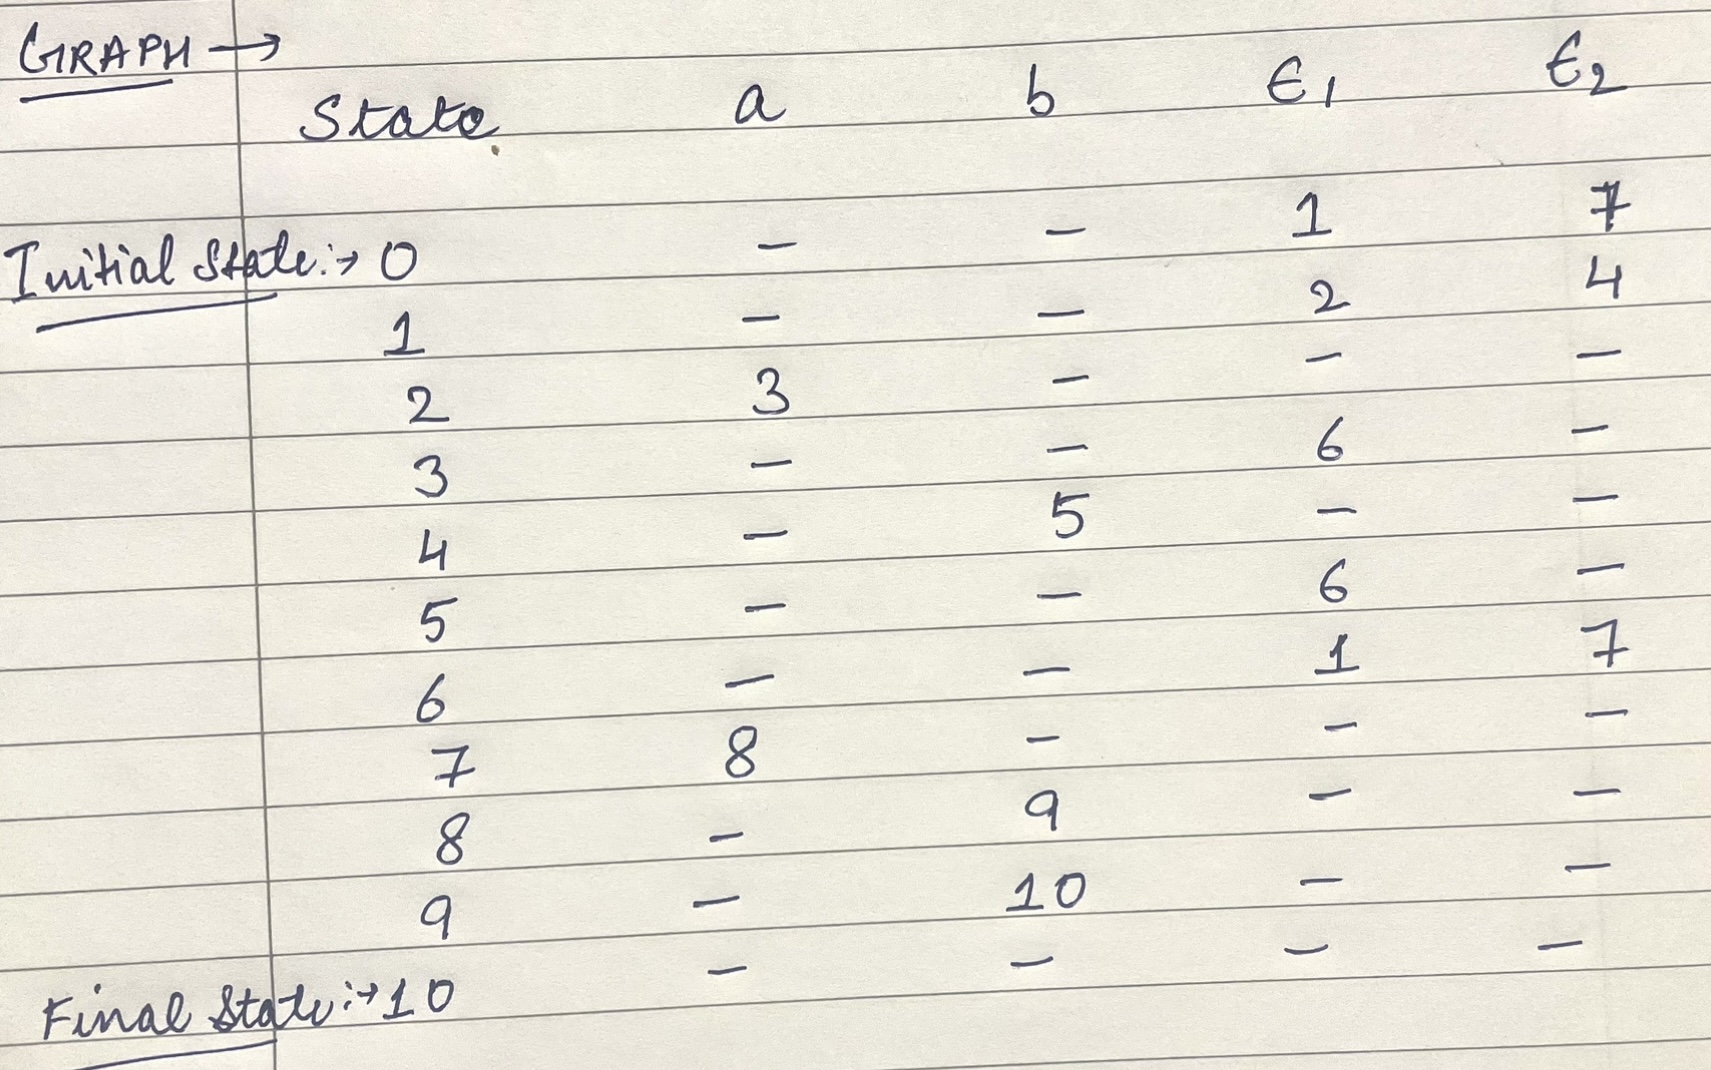 GRAPH →
State a b ϵ₁ ϵ₂
Initial State:→ 0 — — 1 7
1 — — 2 4
2 3 — — —
3 — — 6 —
4 — 5 — —
5 — — 6 —
6 — — 1 7
7 8 — — —
8 — 9 — —
9 — 10 — —
Final State:→ 10 — — — —